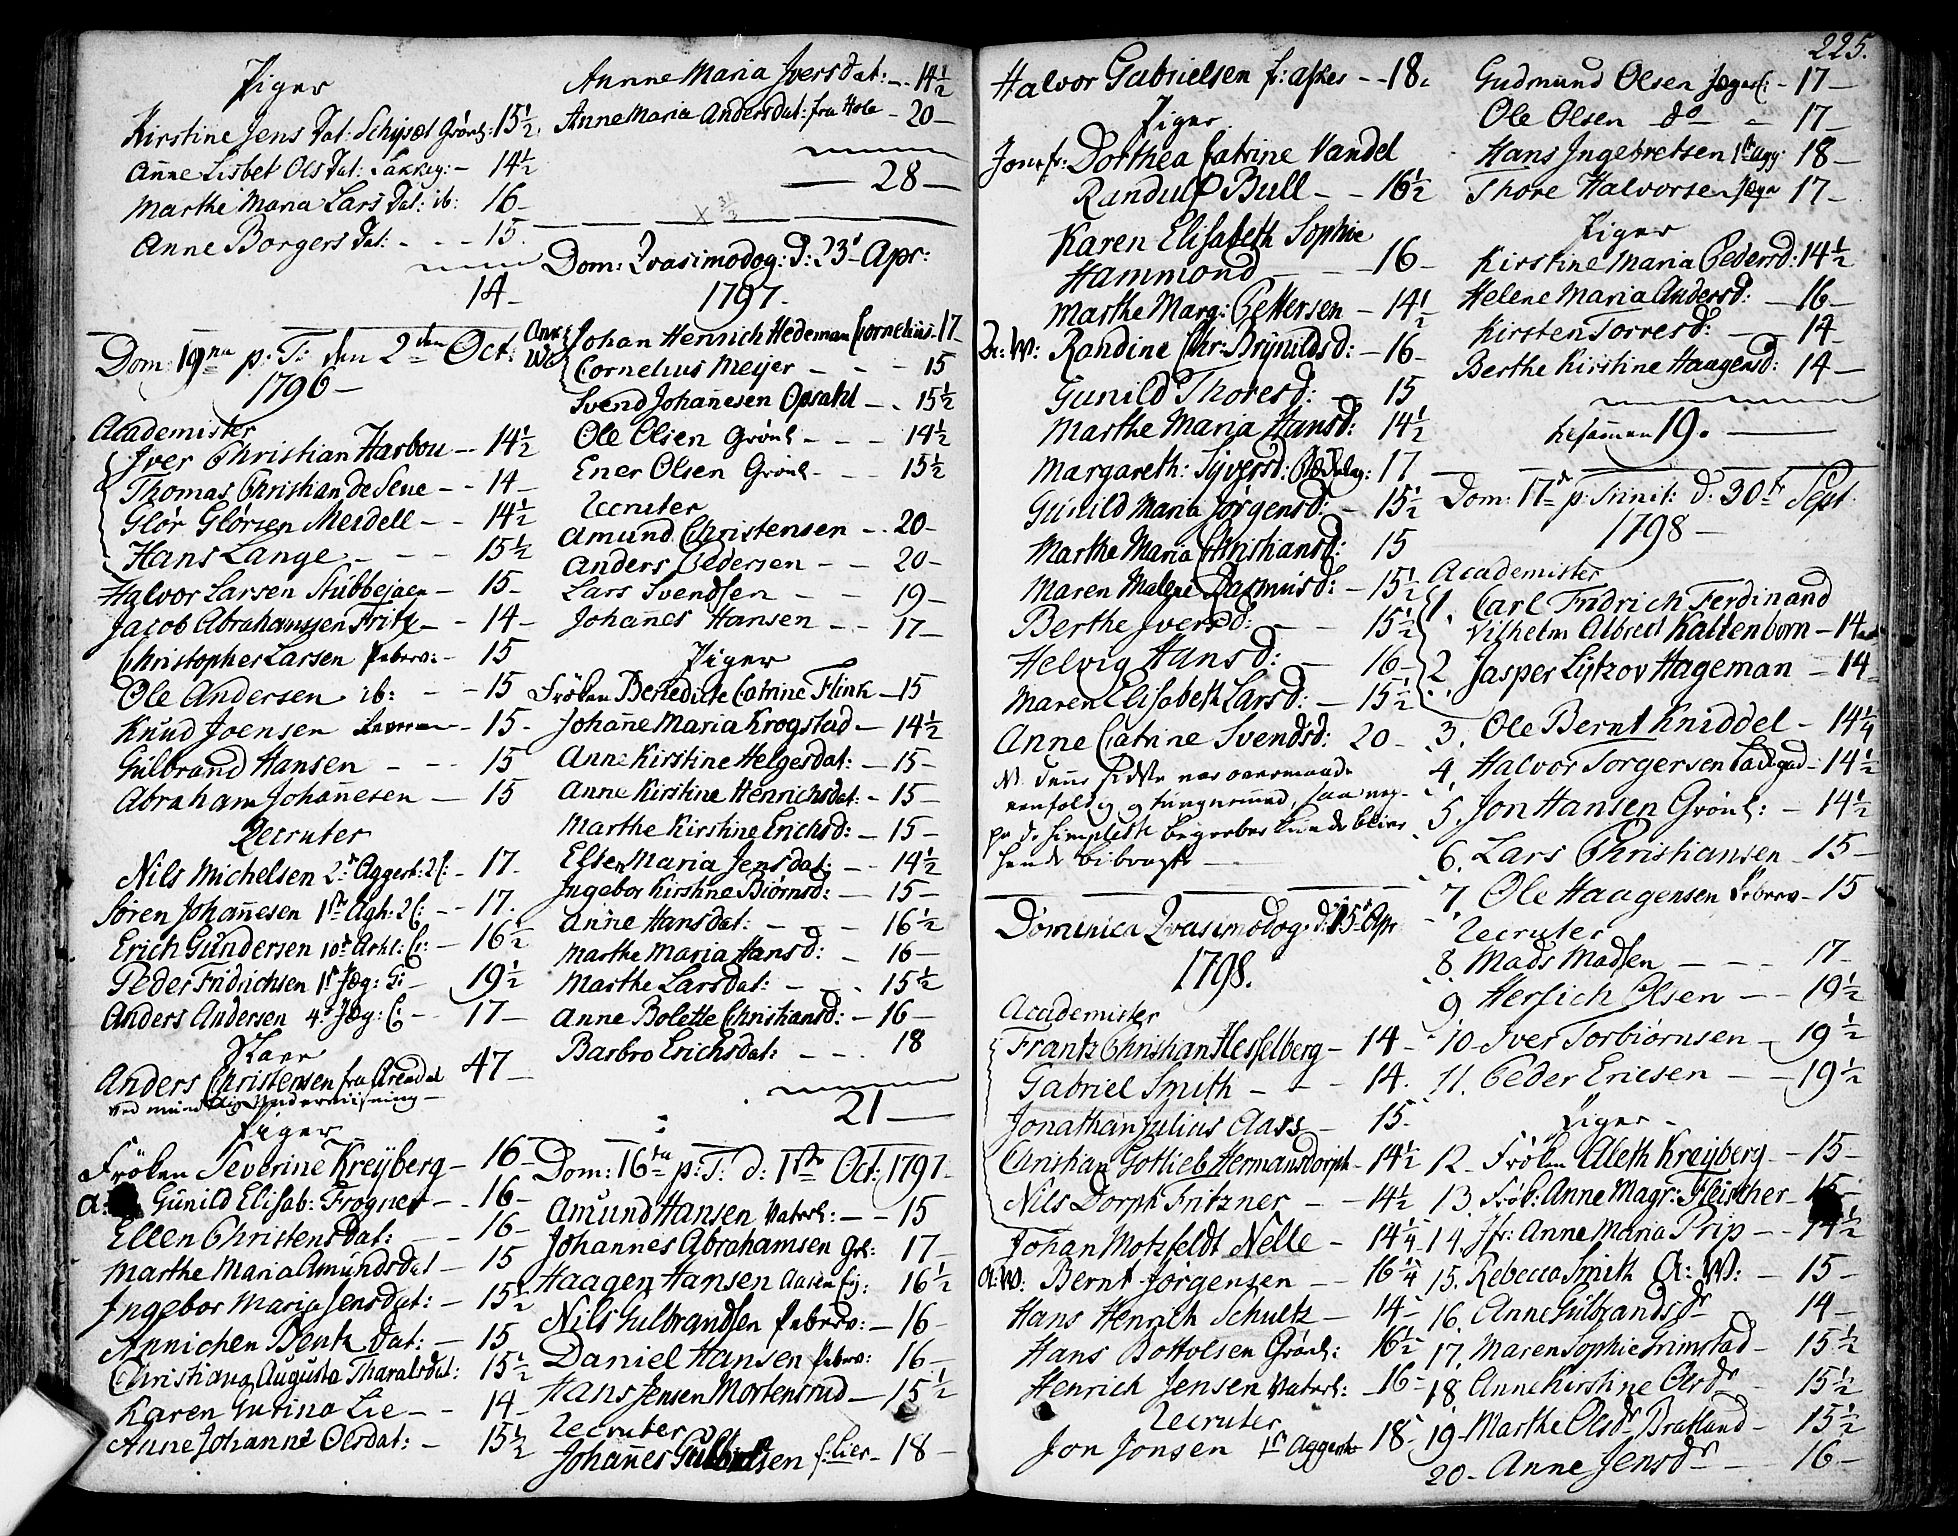 Piger
Kirstine Jens Dat: Schyset Grönl: 15½
Anne Lisbet Ols Dat: Lakkeg: - 14½
Marthe Maria Lars Dat: ib: 16-
Anne Borgers Dat: - - - 15.
14-
Dom: 19na p: T: den 2den Oct:
1796-
Academister
Iver Christian Harbou - - 14½
Thomas Christian de Seue - - 14-
Glör Glörsen Meidell - - 14½
Hans Lange - - - 15½
Halvor Larsen Stubbejaen - 15-
Jacob Abrahamsen Fritz - - 14-
Christopher Larsen Peberv: - 15
Ole Andersen ib: - - 15
Knud Joensen - 15-
Gulbrand Hansen - - - 15
Abraham Johañesen - 15
Recruter
Nils Michelsen 2d Aggersh: 2 C: - 17.
Sören Johañesen 1ste Agh: 2 C: - - 17.
Erich Gundersen 10d Arhl: C: - 16½
Peder Fridrichsen 1st Jæg: C: - 19½
Anders Andersen 4d Jæg: C: - 17-
Slave
Anders Christensen fra Arendal 47-
ved mundtlig Underviisning -
Piger
Fröken Severine Kreyberg - 16-
A: Gunild Elisab: Frogner - 16-
Ellen Christens Dat: - 16-
Marthe Maria Amunds Dat - 15
Ingebor Maria Jensdat: - 15½
Annichen Benk Dat: - 15
Christiana Augusta Tharalsdat: 15½
Karen Gurina Lie - - 14-
Anne Johanne Olsdat: - 15½
Annne Maria Ivers Dat: - - 14½
Anne Maria Andersdat: fra Hole - 20-
— 28-
Dom: Qvasimodog: d: 23d Apr:
1797.
Johan Henrich Hedeman Cornelius - 17
Cornelius Meyer - - - 15
Svend Johañesen Opsahl - - 15½
Ole Olsen Grönl - - - 14½
Ener Olsen Grönl - - - 15½
Recruter
Amund Christensen - - 20-
Anders Pedersen - - 20-
Lars Svendsen - - 19-
Johañes Hansen - - 17-
Piger
Fröken Benedicte Catrine Flink - 15
Johañe Maria Krogstad - 14½
Anne Kirstine Helgesdat: - 15-
Anne Kirstine Henrichsdat: - 15-
Marthe Kirstine Erichsd: - 15-
Ellen Maria Jensdat: - 14½
Ingebor Kirstine Biörnsd: - 15-
Anne Hansdat: - - - 16½
Marthe Maria Hansd: - 16-
Marthe Larsdat: - - - 15½
Anne Bolette Christiansd: - 16-
Barbro Erichsdat: - - - 18
21-
Dom: 16ta p: T: d: 1ste Oct: 1797.
Amund Hansen Vaterl: - - 15
Johannes Abrahamsen Grl: - 17-
Haagen Hansen 16½
Nils Gulbrandsen Peberv: - 16-
Daniel Hansen Peberv: - 16-
Hans Jensen Mortensrud - 15½
Recruter
Johañes f: Lier - 18-
225.
Halvor Gabrielsen f: Asker - - 18.
Piger
Jomfr: Dorthea Catrine Vandel
Randulf Bull - - 16½
Karen Elisabeth Sophie
Hammond - - - 16-
Marthe Marg: Pettersen - 14½
A: W: Randine Chr: Brynildsd: - 16-
Gunild Thoresd: - 15
Marthe Maria Hansd: 14½
Margareth: Syversd: 17
Gunild Maria Jörgensd: - 15½
Marthe Maria Christiansd: 15
Maren Malene Rasmusd: - 15½
Berthe Iversd: - - 15½
Helvig Hansd: - 16-
Maren Elisabeth Larsd: - 15½
Anne Catrine Svendsd: 20-
NB. denne sidste var overmaade
eenfoldig og tungnemmed, saa nep-
pe de simpleste begreber kunde blive
hende bibragte -
Dominica Qvasimodog: d: 15d Apr
1798.
Academister
Frantz Christian Hesselberg - 14-
Gabriel Smith - - - 14.
Jonathan Julius Aass - 15-
Christian Gotlieb Hermansdorph - 14½
Nils Dorph Fritzner - 14½
Johan Motzfeldt Nelle - 14¼
A: W: Bernt Jörgensen - - 16¼
Hans Henrich Schultz - 14-
Hans Bottolsen Grönl: 16½
Henrich Jensen Vaterl: - 16-
Recruter
Jon Jonsen 1st Aggersh 18-
Gudmund Olsen Jæger C: - 17-
Ole Olsen do - 17-
Hans Ingebretsen 1ste Agg: 18-
Thore Halvorsen Jæge 17-
Piger
Kirstine Maria Pedersd: 14½
Helene Maria Andersd: - 16-
Kirsten Torresd: - 14-
Berthe Kirstine Haagensd: 14-
tilsammen 19. —
Dom: 17d p: Trinit: d: 30te Sept:
1798-
Academister
1. Carl Fridrich Ferdinand
Vilhelm Albrect Kaltenborn - 14
2 Jasper Lytzov Hageman - 14
3. Ole Bernt Kniddel - 14¼
4. Halvor Torgersen Ladegad - 14½
5. Jon Hansen Grönl: - 14½
6. Lars Christiansen - 15-
7. Ole Haagensen Peberv - 15
Recruter
8. Mads Madsen - - - 17-
9 Herlich Olsen - - 19½
10- Iver Torbiörnsen - 19½
11. Peder Ericsen - - 19½
Piger -
12- Fröken Aleth Kreyberg - 15-
13. Fröb: Anne Magr: Fleischer - 15-
14. Jfr: Anne Maria Prip - - 14½
15. Rebecca Smith A: W: - 15-
16. Anne Gulbrandsdr 14-
17. Maren Sophie Grimstad - 15½
18. Anne Kirstine Olsdr 15½
19- Marthe Olsdr Bratland - 15½
20- Anne Jensdr - - 16-